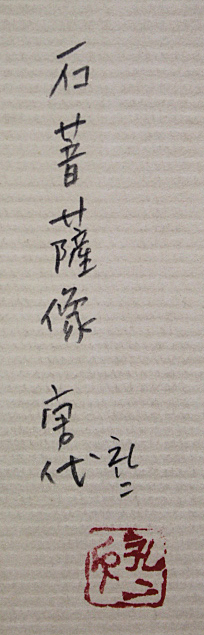 石菩薩像 唐代
礼二
礼二